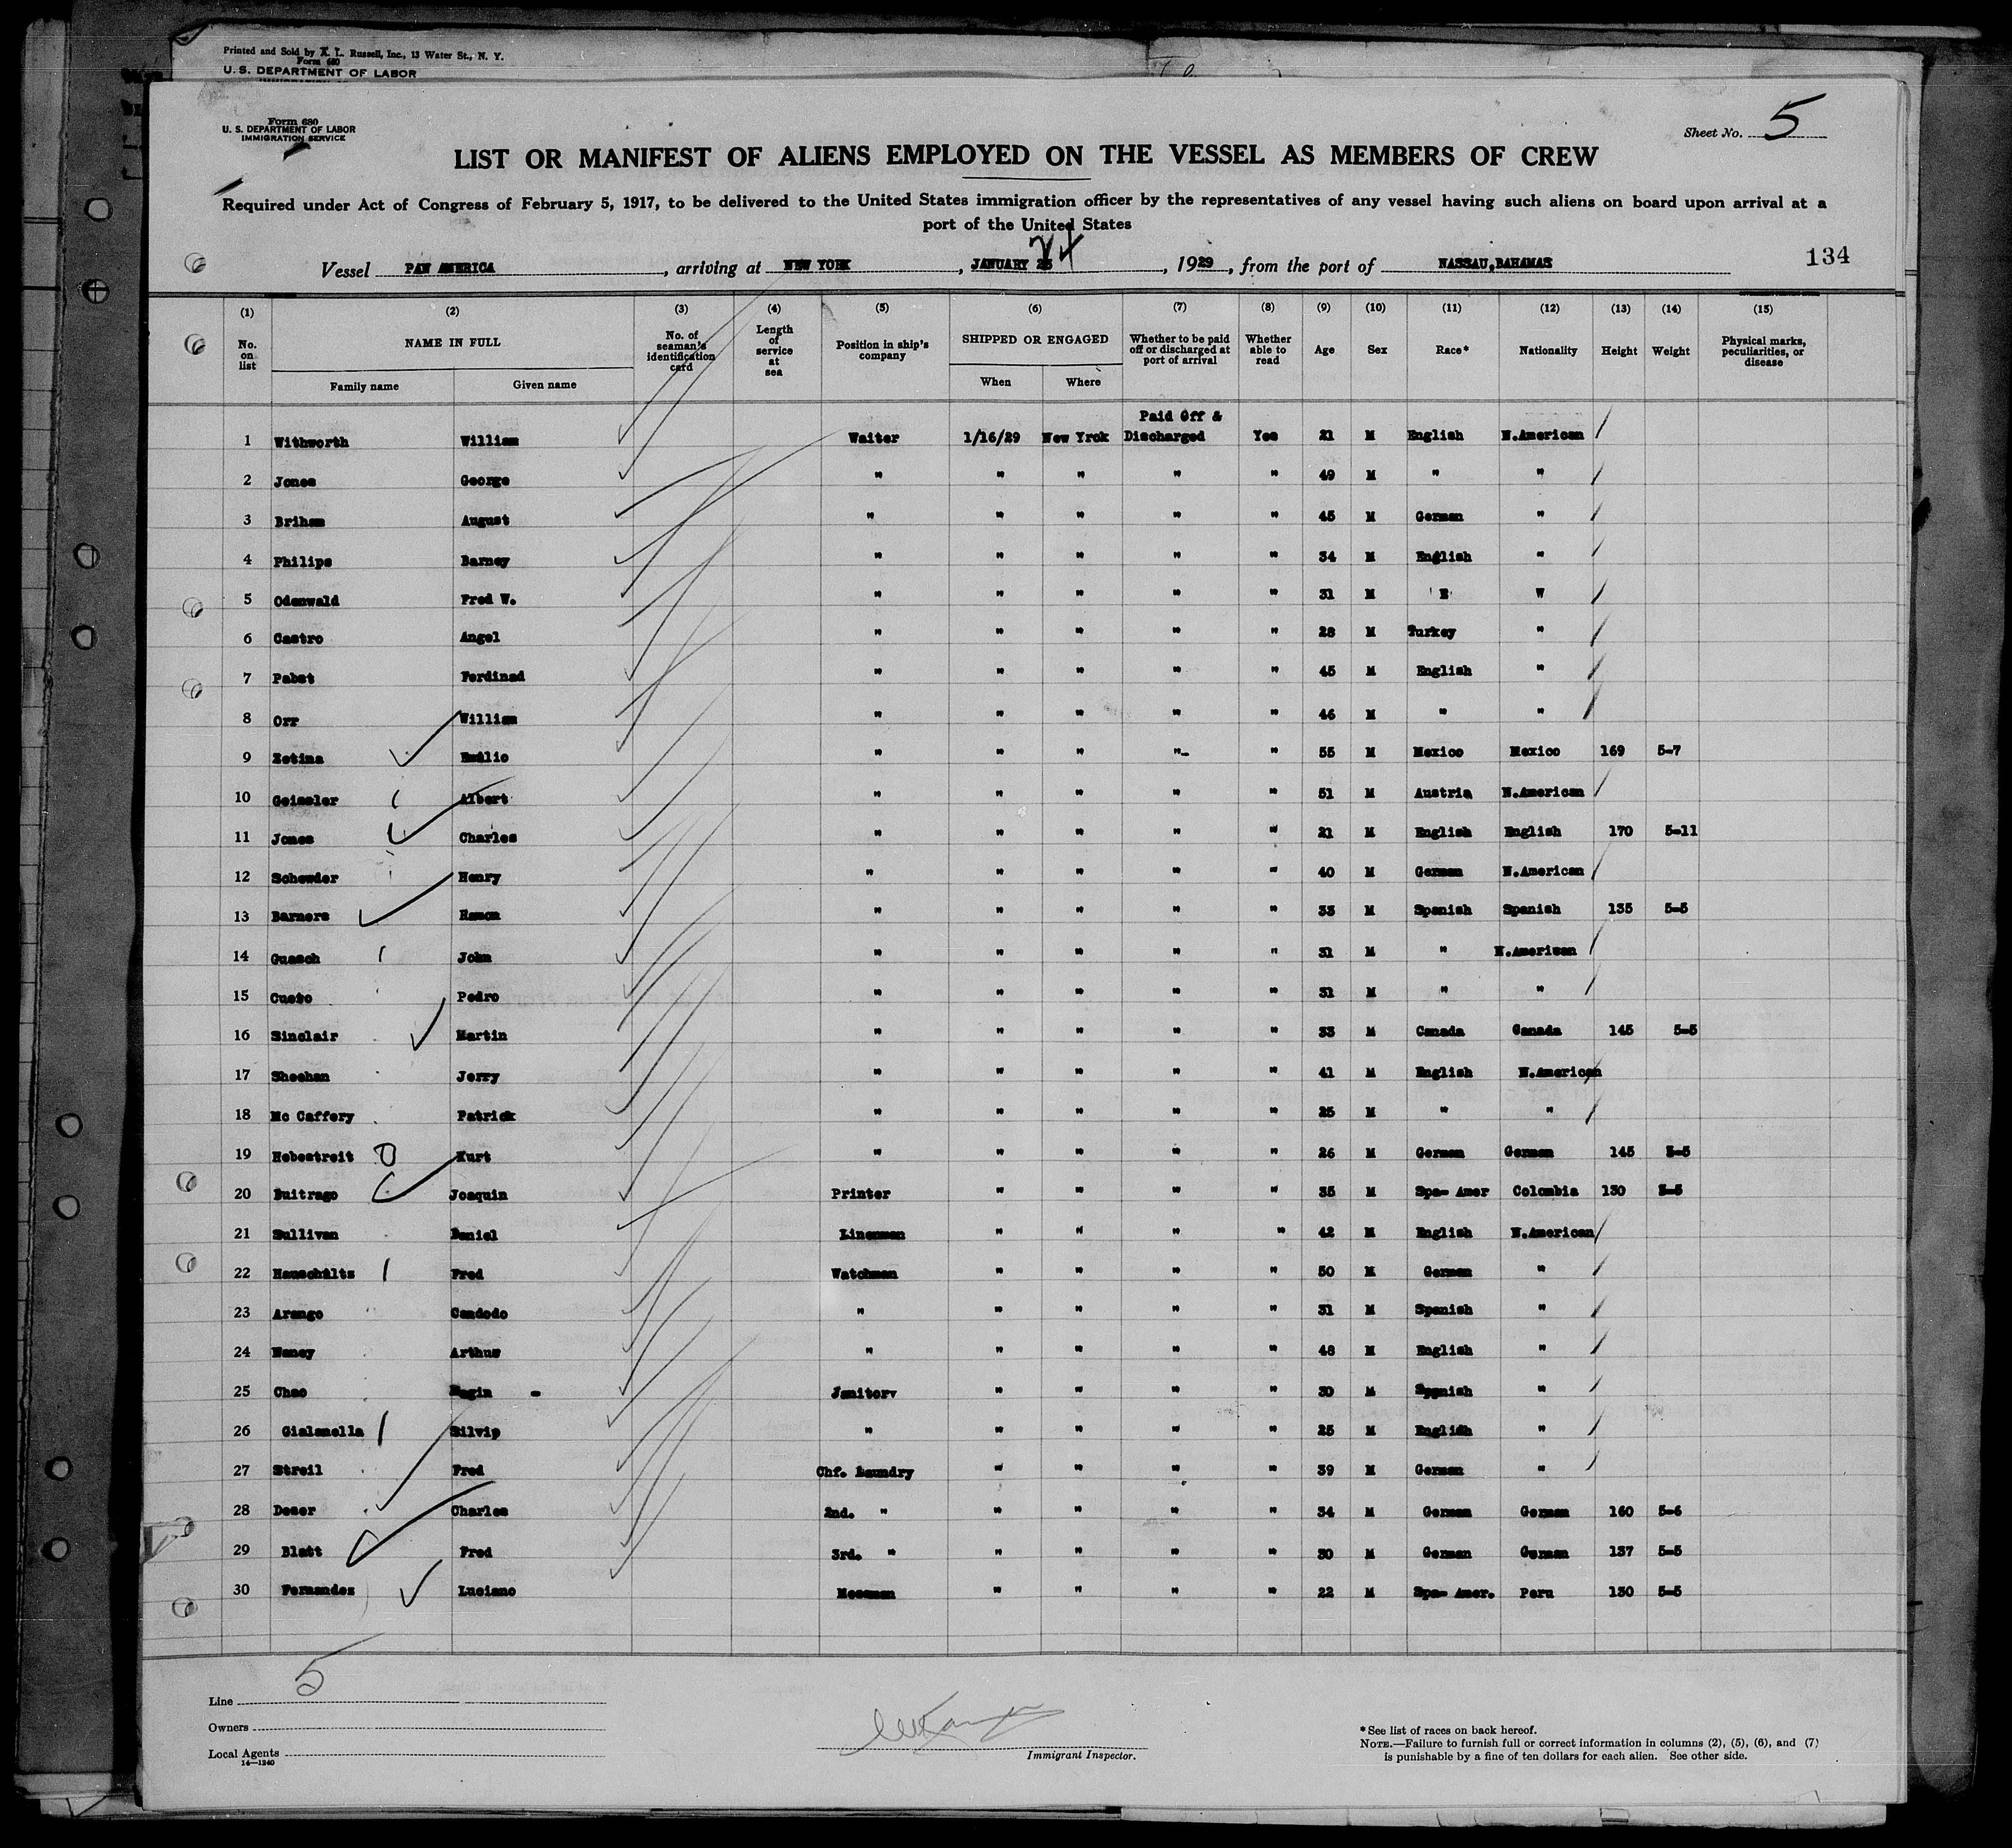 Printed and Sold by A. L. Russell, Inc., 13 Water St., N. Y.
Form 680
U. S. DEPARTMENT OF LABOR
Form 680
U. S. DEPARTMENT OF LABOR
IMMIGRATION SERVICE
Sheet No. 5
LIST OR MANIFEST OF ALIENS EMPLOYED ON THE VESSEL AS MEMBERS OF CREW
Required under Act of Congress of February 5, 1917, to be delivered to the United States immigration officer by the representatives of any vessel having such aliens on board upon arrival at a
port of the United States
24
Vessel PAN AMERICA, arriving at NEW YORK, JANUARY 25, 1929, from the port of NASSAU, BAHAMAS 134
(1) (2) (3) (4) (5) (6) (7) (8) (9) (10) (11) (12) (13) (14) (15)
No. on list NAME IN FULL No. of seaman's identification card Length of service at sea Position in ship's company SHIPPED OR ENGAGED Whether to be paid off or discharged at port of arrival Whether able to read Age Sex Race* Nationality Height Weight Physical marks, peculiarities, or disease
Family name Given name When Where
Paid Off &
1 Withworth William Waiter 1/16/29 New Yrok Discharged Yes 21 M English N.American /
2 Jones George " " " " " 49 M " " /
3 Brihem August " " " " " 45 M German " /
4 Philips Barney " " " " " 34 M English " /
5 Odenwald Fred W. " " " " " 31 M E W /
6 Castro Angel " " " " " 28 M Turkey " /
7 Pabst Ferdinad " " " " " 45 M English " /
8 Orr William " " " " " 46 M " " /
9 Zetina Emilio " " " "- " 55 M Mexico Mexico 169 5-7
10 Geissler Albert " " " " " 51 M Austria N.American /
11 Jones Charles " " " " " 21 M English English 170 5-11
12 Schewder Henry " " " " " 40 M German N.American /
13 Barners Ramon " " " " " 33 M Spanish Spanish 135 5-5
14 Guasch John " " " " " 31 M " N.American /
15 Cueto Pedro " " " " " 31 M " " /
16 Sinclair Martin " " " " " 33 M Canada Canada 145 5-5
17 Sheehan Jerry " " " " " 41 M English N.American /
18 Mc Caffery Patrick " " " " " 25 M " " /
19 Hebestreit Kurt " " " " " 26 M German German 145 5-5
20 Buitrago Joaquin Printer " " " " 35 M Spa- Amer Colombia 130 5-5
21 Sullivan Daniel Linenman " " " " 42 M English N.American /
22 Hauschilts Fred Watchman " " " " 50 M German " /
23 Arango Candodo " " " " " 31 M Spanish " /
24 Haney Arthur " " " " " 48 M English " /
25 Chao Magin - Janitorv " " " " 30 M Sppnish " /
26 Gialanella Silvip " " " " " 25 M English " /
27 Streil Fred Chf. Laundry " " " " 39 M German " /
28 Deser Charles 2nd. " " " " " 34 M German German 160 5-6
29 Blatt Fred 3rd. " " " " " 30 M German German 137 5-5
30 Fernandez Luciano Messman " " " " 22 M Spa- Amer. Peru 130 5-5
5
Line
Owners
Local Agents
14—1240
Immigrant Inspector.
*See list of races on back hereof.
NOTE.—Failure to furnish full or correct information in columns (2), (5), (6), and (7)
is punishable by a fine of ten dollars for each alien. See other side.